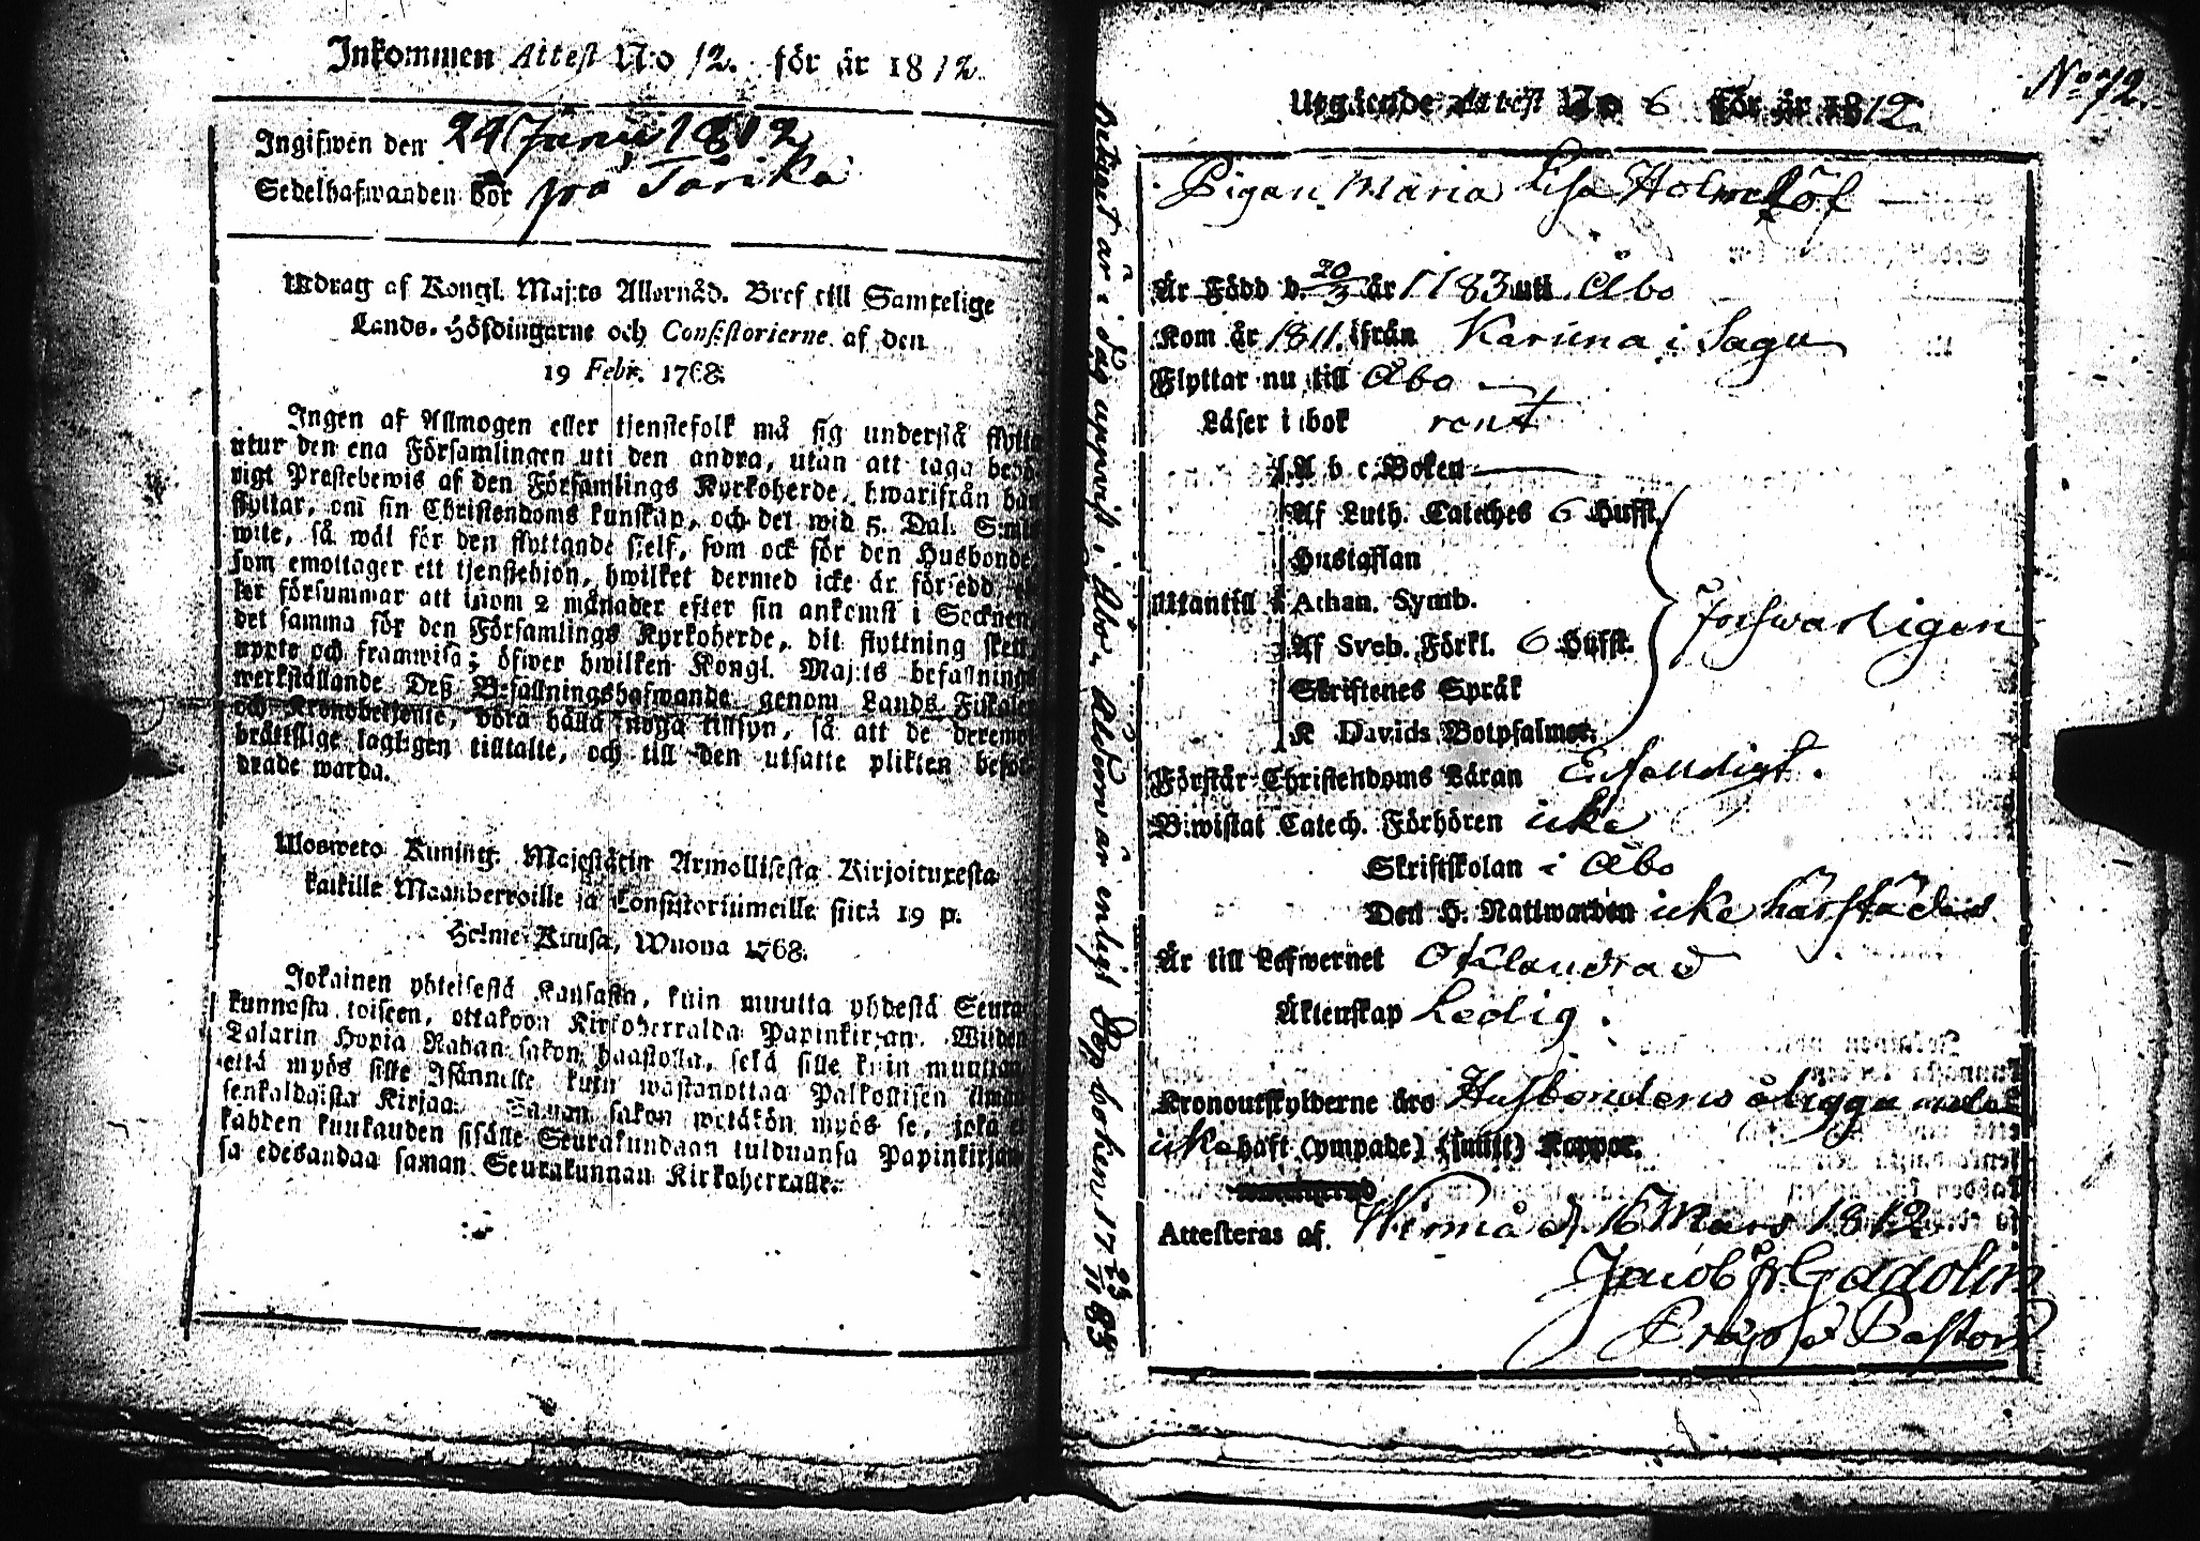 Inkommen Attest N:o 12. för år 1812
Ingifwen den 24 Junii 1812
Sedelhafwanden bor på Tarika
Utdrag af Kongl. Maj:ts Allernåd. Bref till Samtelige
Lands-Höfdingarne och Consistorierne af den
19 Febr. 1768.
Ingen af Allmogen eller tjenstefolk må sig understå flytta
utur den ena Församlingen uti den andra, utan att taga behö-
rigt Prestebewis af den Församlings Kyrkoherde, hwarifrån han
flyttar, om sin Christendoms kunskap, och det wid 5. Dal. S:mts
wite, så wäl för den flyttande sjelf, som ock för den Husbonde,
som emottager ett tjenstehion, hwilket dermed icke är försedd, el-
ler försummar att inom 2 månader efter sin ankomst i Socknen,
det samma för den Församlings Kyrkoherde, dit flyttning skett,
uppte och framwisa; öfwer hwilken Kongl. Maj:ts befallnings
werkställande Deß Befallningshafwande genom Lands Fiskaler
och Kronobetjente, böra hålla noga tillsyn, så att de deremot
bråttslige lagligen tilltalte, och till den utsatte plikten befor-
drade warda.
Ulosweto Kuning. Majestätin Armollisesta Kirjoituxesta
kaikille Maanherroille ja Consistoriumeille siitä 19 p.
Helme-Kuusa, Wuona 1768.
Jokainen yhteisestä Kansasta, kuin muutta yhdestä Seura-
kunnasta toiseen, ottakoon Kirkoherralda Papinkirjan, Wiiden
Talarin Hopia Rahan sakon haastolla, sekä sille kuin muuttaa
että myös sille Isännelle kuin wastanottaa Palkollisen ilman
senkaldaista Kirjaa. Saman sakon wetäkön myös se, joka ei
kahden kuukauden sisälle Seurakundaan tulduansa Papinkirjaan-
sa edesandaa saman Seurakunnan Kirkoherralle.
No 12.
Utgående Attest No 6 För år 1812.
Pigan Maria Lisa Holmlöf
Är Född d. 20/3 år 1783 uti Åbo
Kom år 1811 ifrån Karuna i Sagu
Flyttar nu till Åbo
Läser i bok rent
A b c Boken
Af Luth. Cateches 6 Hufst.
Hustaflan
Utantill Athan. Symb.
Af Sveb. Förkl. 6 Hufst.
Skriftenes Språk
K Davids Botpsalmer.
Forswarligen
Förstår Christendoms Läran Enfalldigt.
Biwistat Catech. Förhören icke
Skriftskolan i Åbo
Den H. Nattwarden icke härstädes
Är till Lefwernet oklandrad
Äktenskap Ledig.
Kronoutskylderne äro Husbondens åligga
icke haft (ympade) (smitt) Koppor.
Attesteras af Wirmo d. 16 Mars 1812
Jacob Gadolin
Præpos. Pastor
är i dag uppwist i Åbo. Åldern är enligt Dop boken 17 23/11 83